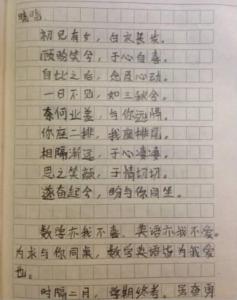 初见有女，白衣美发。
顾盼笑兮，于心自喜。
自此之后，念及心动。
一日不见，如三秋兮。
奈何业差，与你远隔。
你座二排，我座排尾。
相隔渐远，于心凄凄。
思之笑颜，于情切切。
遂奋起兮，盼与你同坐。
数学亦我不喜，英语亦我不爱。
为求与你同桌，数学英语皆为我爱
也。
时隔二月，学期终考。